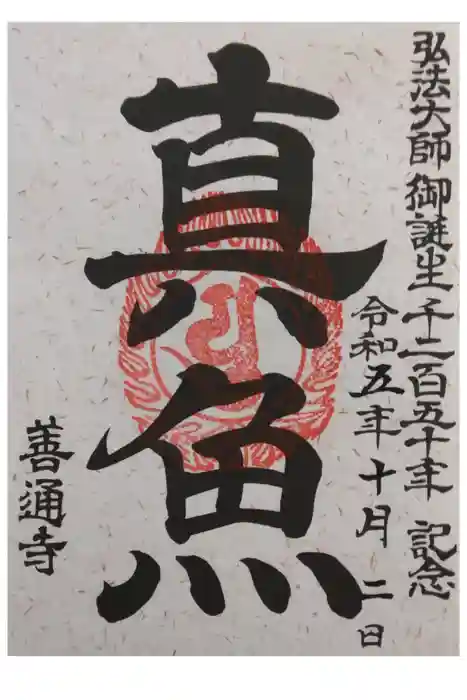 弘法大師御誕生千二百五十年 記念
令和五年十月二日
真魚
善通寺